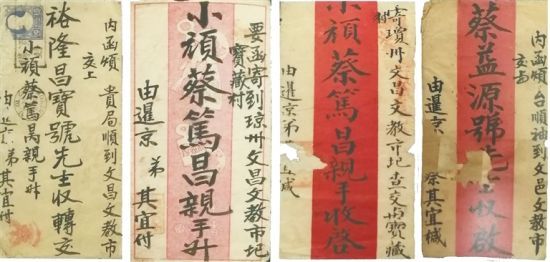 内函煩 貴局順到文昌文教市
交上
裕隆昌寶號先生收轉交
小頑蔡篤昌親手升
由 京 弟 其宜付
要函寄到琼州文昌文教市圯
寶藏村
小頑蔡篤昌親手升
由暹京 弟 其宜付
寄瓊州文昌文教市圯查交 寶藏
小頑蔡篤昌親手收啓
由暹京弟
内函煩 台順袖到文邑文教市
交与
蔡益源號先生收啟
由暹京 蔡其宜椷